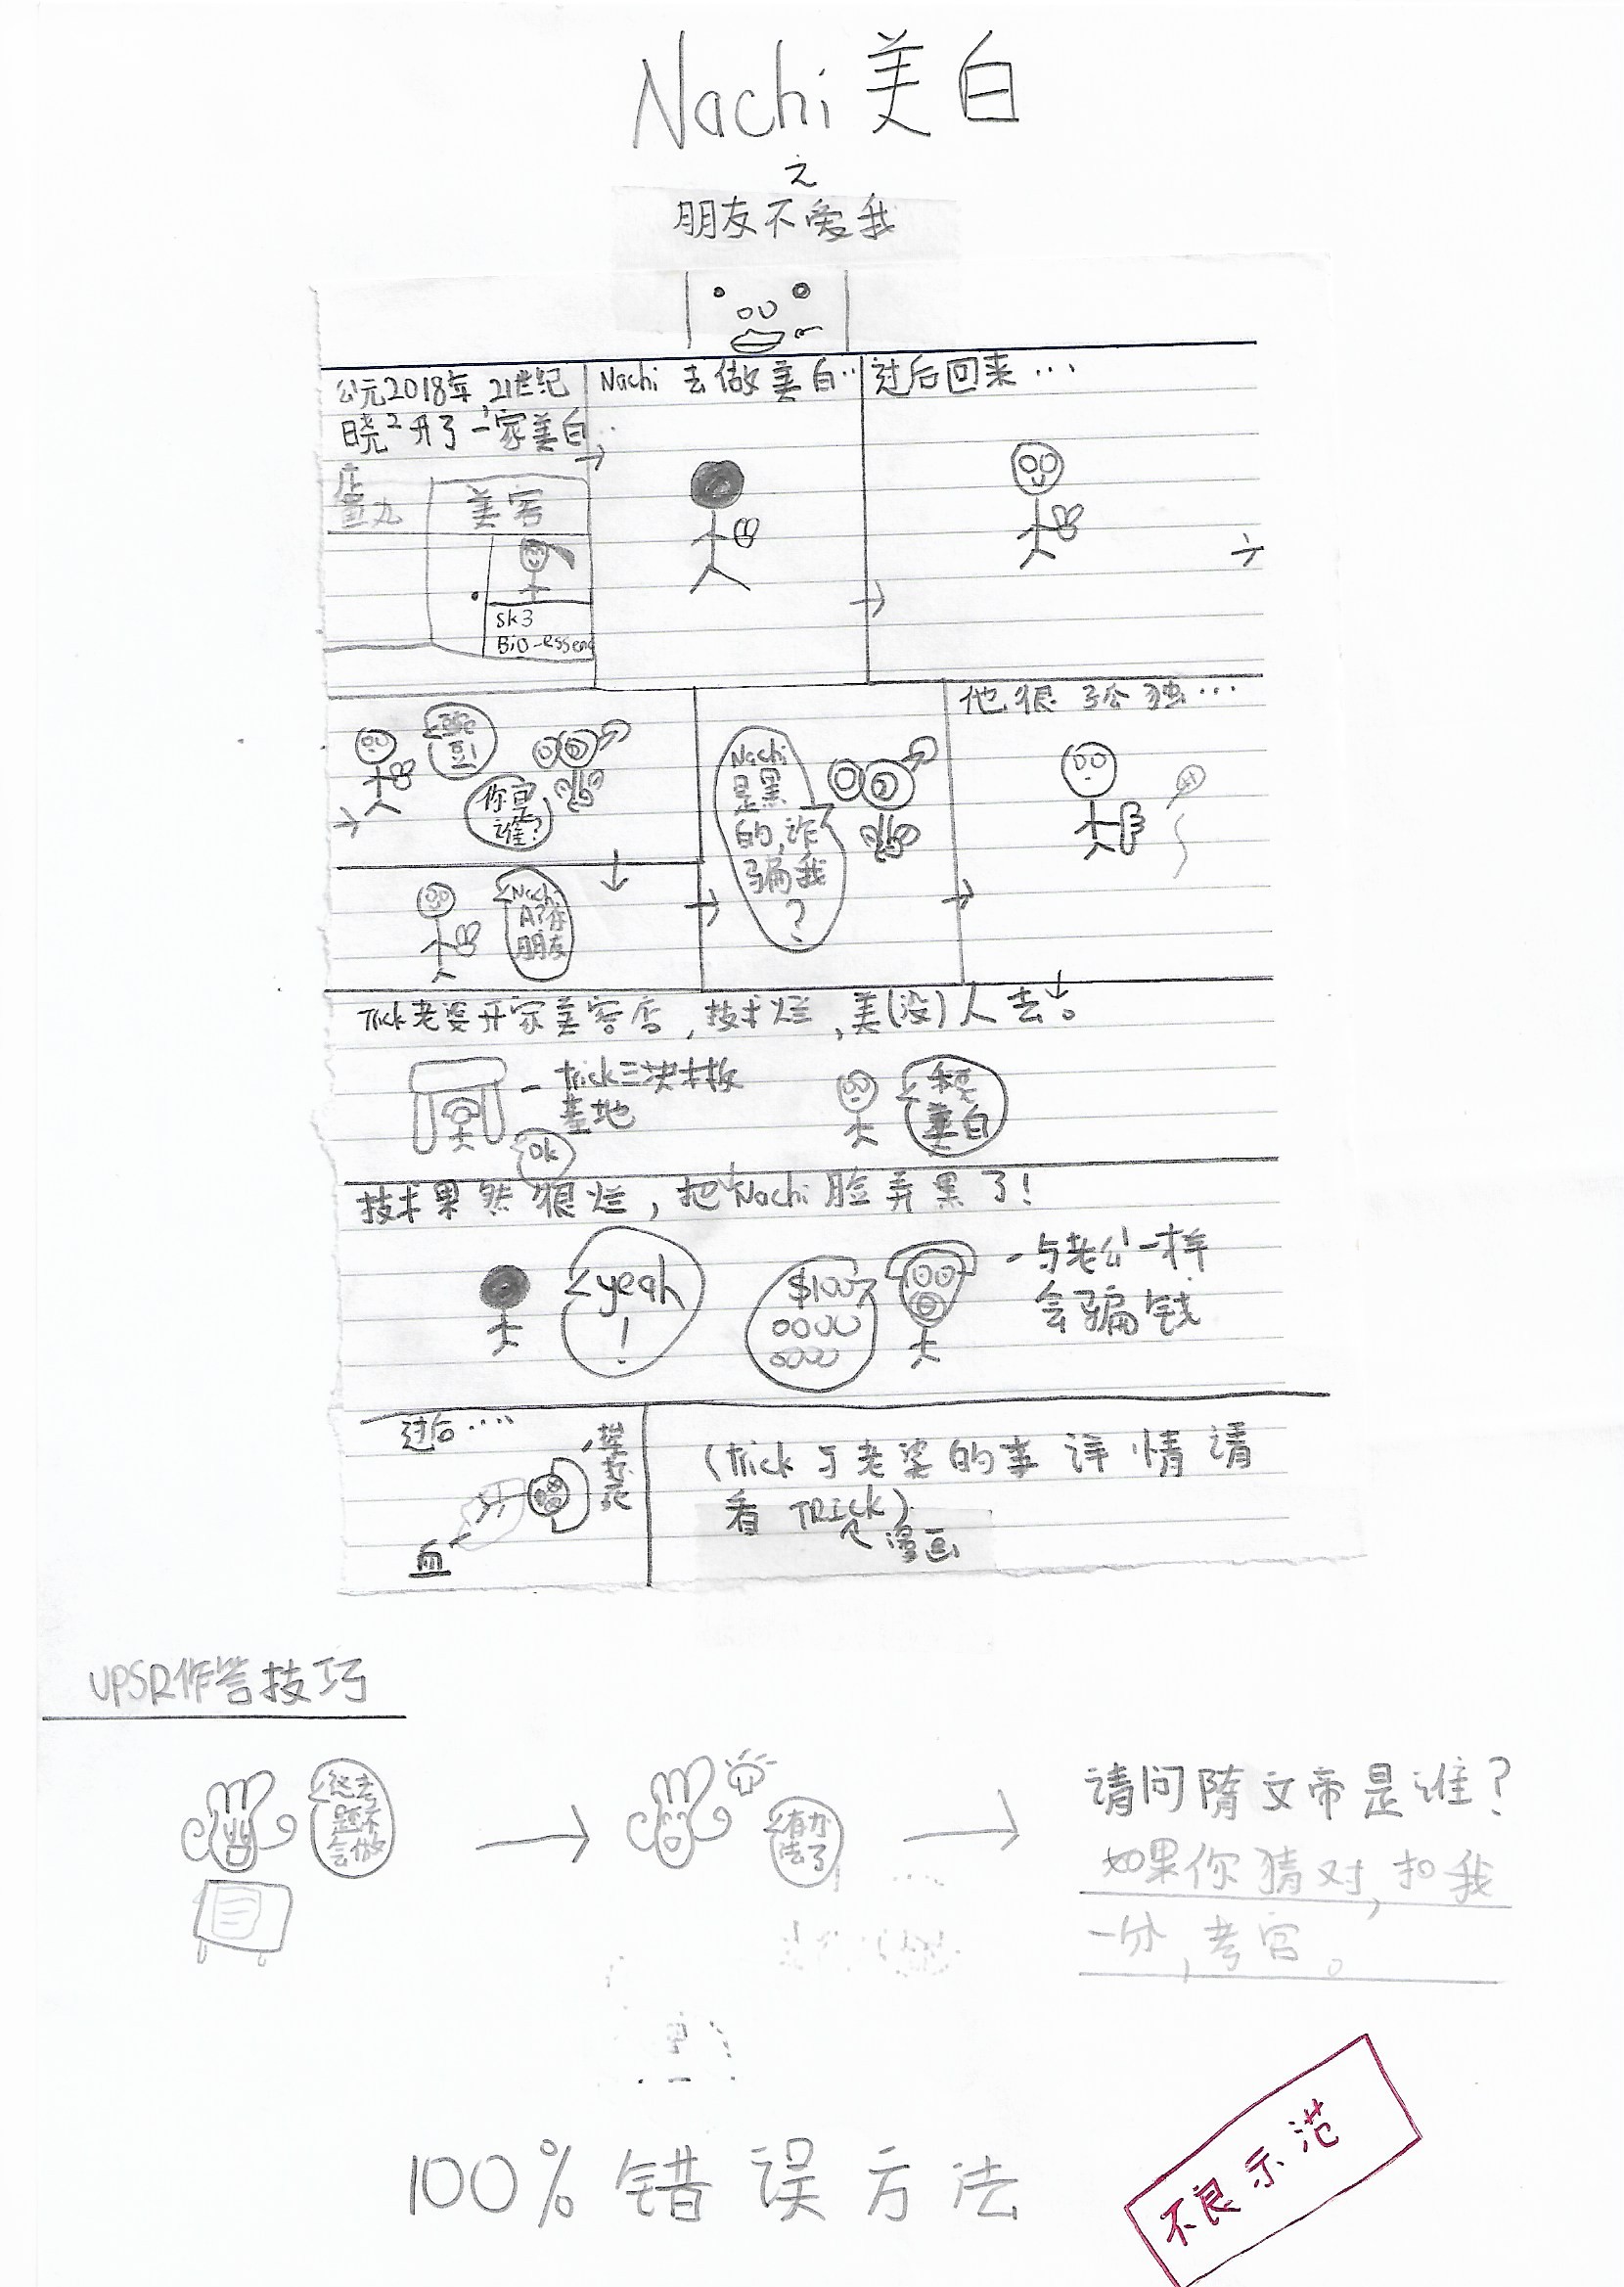 Nachi 美白
之
朋友不爱我
公元2018年,21世纪
晓2开了一家美白..
店
美容
sk3
Bio-essenc
Nachi 去做美白..
过后回来...
豌豆!
你是谁?
Nachi A?你朋友
Nachi
是黑
的,诈
骗我
?
他很孤独...
Trick老婆开家美容店,技术烂,美(没)人去。
- trick三决木板
基地
ok
我要
美白
技术果然很烂,把Nachi脸弄黑了!
yeah
!
$100
0000
0000
- 与老公一样
会骗钱
过后....
血
(trick与老婆的事详情请
看 TRICK)
漫画
UPSR作答技巧
这题不会做
有办法了
请问隋文帝是谁?
如果你猜对,扣我
一分,考官。
100%错误方法
不良示范